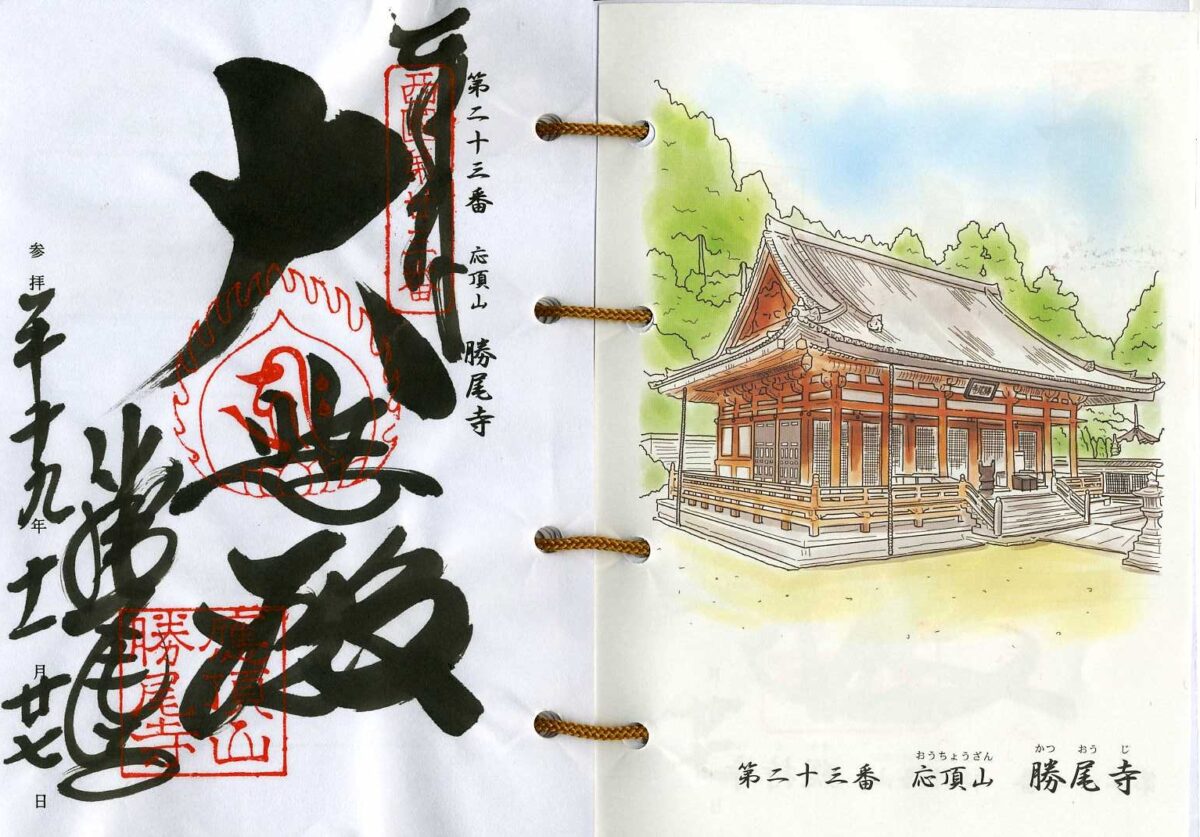 第二十三番 応頂山 勝尾寺
大悲殿
勝尾寺
應頂山
勝尾寺
参拝 平十九年十一月廿七日
勝尾寺
おうちょうざん かつおうじ
第二十三番 応頂山 勝尾寺